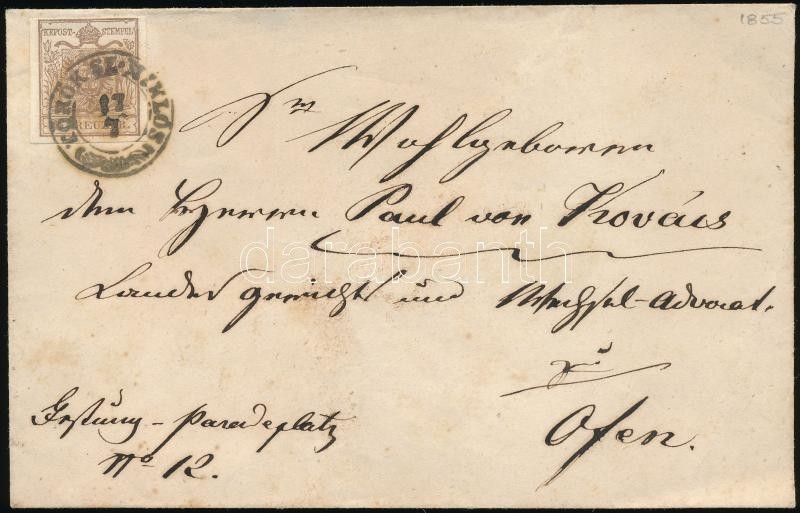 1855
KK POST-STEMPEL
TÖRÖK SZ. MIKLOS
17
7
KREUZER
Sr Wohlgeboren
dem Herrn Paul von Kovács
Landesgerichts und Wechsel-Advocat.
zu
Ofen.
Festung - Paradeplatz
No 12.
darabanth